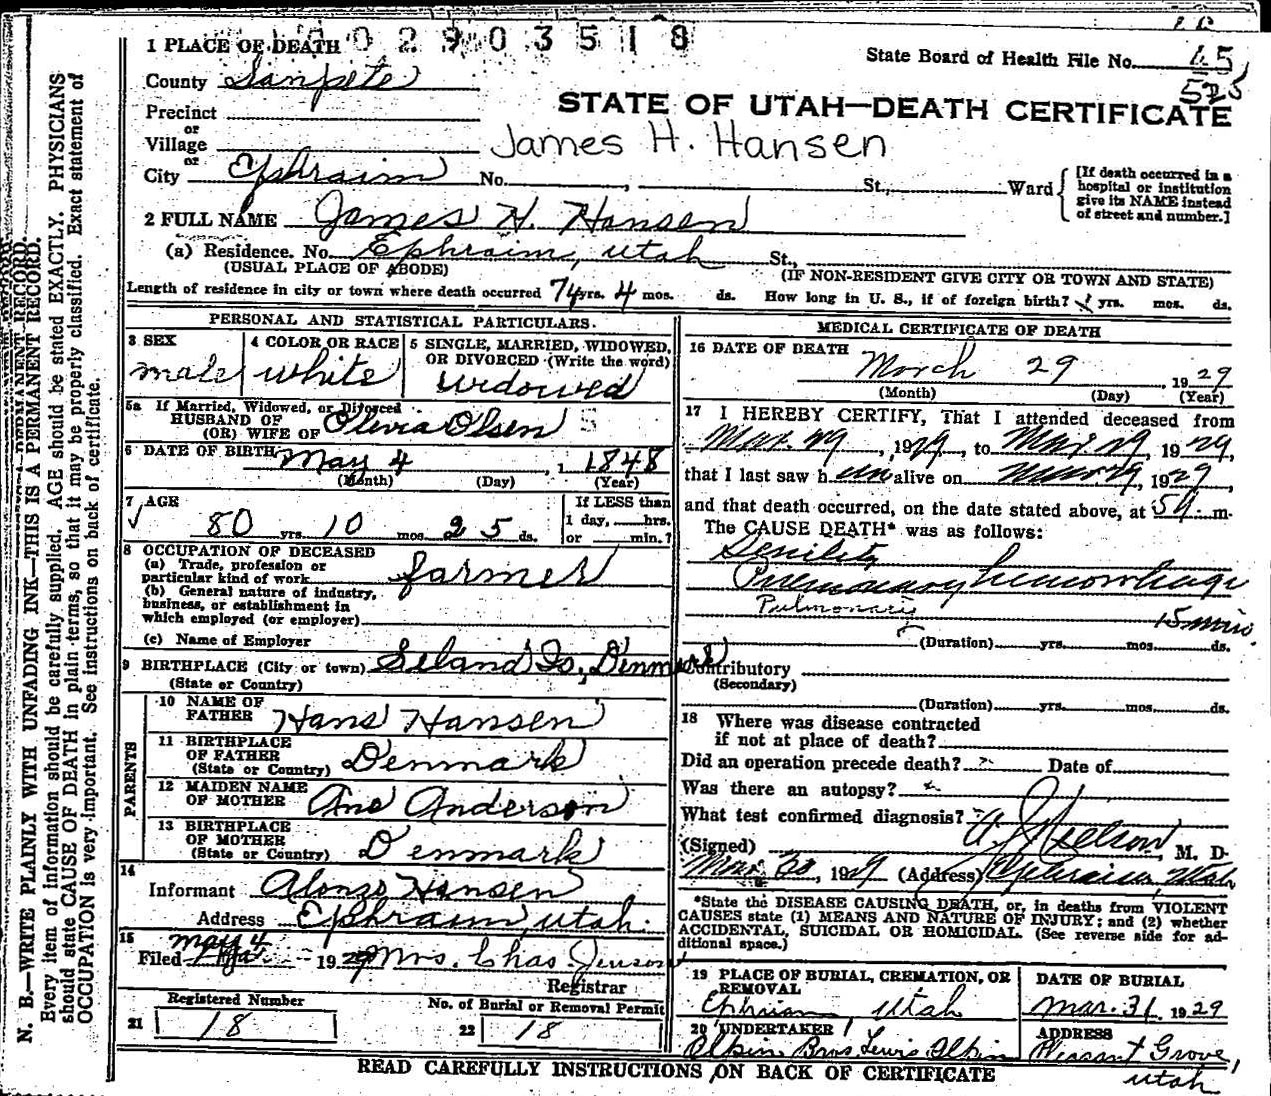 0 2 9 0 3 5 1 8
1 PLACE OF DEATH
State Board of Health File No. 45
525
County Sanpete
STATE OF UTAH—DEATH CERTIFICATE
Precinct
or
Village
James H. Hansen
or
City Ephraim No. , St., Ward
[If death occurred in a hospital or institution give its NAME instead of street and number.]
2 FULL NAME James H. Hansen
(a) Residence. No. Ephraim, Utah St.,
(USUAL PLACE OF ABODE) (IF NON-RESIDENT GIVE CITY OR TOWN AND STATE)
Length of residence in city or town where death occurred 74 yrs. 4 mos. ds. How long in U. S., if of foreign birth? yrs. mos. ds.
PERSONAL AND STATISTICAL PARTICULARS.
3 SEX male
4 COLOR OR RACE white
5 SINGLE, MARRIED, WIDOWED, OR DIVORCED (Write the word) widowed
5a If Married, Widowed, or Divorced
HUSBAND OF
(OR) WIFE OF Olivia Olsen S
6 DATE OF BIRTH May 4, 1848
(Month) (Day) (Year)
7 AGE
80 yrs. 10 mos. 25 ds.
If LESS than
1 day, hrs.
or min.?
8 OCCUPATION OF DECEASED
(a) Trade, profession or
particular kind of work farmer
(b) General nature of industry,
business, or establishment in
which employed (or employer)
(c) Name of Employer
9 BIRTHPLACE (City or town) Seland Is, Denmark
(State or Country)
PARENTS
10 NAME OF
FATHER Hans Hansen
11 BIRTHPLACE
OF FATHER
(State or Country) Denmark
12 MAIDEN NAME
OF MOTHER Ane Anderson
13 BIRTHPLACE
OF MOTHER
(State or Country) Denmark
14
Informant Alonzo Hansen
Address Ephraim, Utah.
15
May 4
Filed 1929 Mrs. Chas Jenson
Registrar
Registered Number
21 18
No. of Burial or Removal Permit
22 18
MEDICAL CERTIFICATE OF DEATH
16 DATE OF DEATH
March 29, 1929
(Month) (Day) (Year)
17 I HEREBY CERTIFY, That I attended deceased from
Mar. 29, 1929, to Mar. 29, 1929,
that I last saw h im alive on Mar. 29, 1929,
and that death occurred, on the date stated above, at m.
The CAUSE DEATH* was as follows:
Senility
Pulmonary hemorrhage
Pulmonary
15 min.
(Duration) yrs. mos. ds.
Contributory
(Secondary)
(Duration) yrs. mos. ds.
18 Where was disease contracted
if not at place of death?
Did an operation precede death? Date of
Was there an autopsy?
What test confirmed diagnosis?
(Signed) A J Nielson, M. D.
Mar. 30, 1929 (Address) Ephraim, Utah
*State the DISEASE CAUSING DEATH, or, in deaths from VIOLENT
CAUSES state (1) MEANS AND NATURE OF INJURY; and (2) whether
ACCIDENTAL, SUICIDAL OR HOMICIDAL. (See reverse side for ad-
ditional space.)
19 PLACE OF BURIAL, CREMATION, OR
REMOVAL
Ephraim, Utah
DATE OF BURIAL
Mar. 31 1929
20 UNDERTAKER
Olpin Bros. Lewis Olpin
ADDRESS
Pleasant Grove,
Utah
READ CAREFULLY INSTRUCTIONS ON BACK OF CERTIFICATE
N. B.—WRITE PLAINLY WITH UNFADING INK—THIS IS A PERMANENT RECORD.
Every item of information should be carefully supplied. AGE should be stated EXACTLY. PHYSICIANS
should state CAUSE OF DEATH in plain terms, so that it may be properly classified. Exact statement of
OCCUPATION is very important. See instructions on back of certificate.